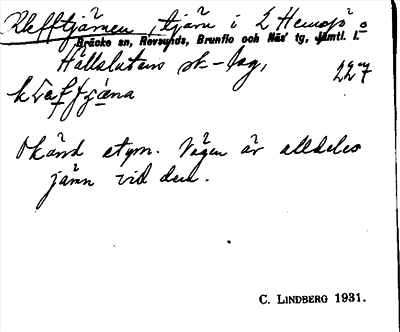 Klefftjärnen, tjärn i L Hemsjö o
Bräcke sn, Revsunds, Brunflo och Näs' tg, Jämtl. l.
Hällslutens sk-lag, 227
Okänd etym. Vägen är alldeles
jämn vid den.
C. LINDBERG 1931.